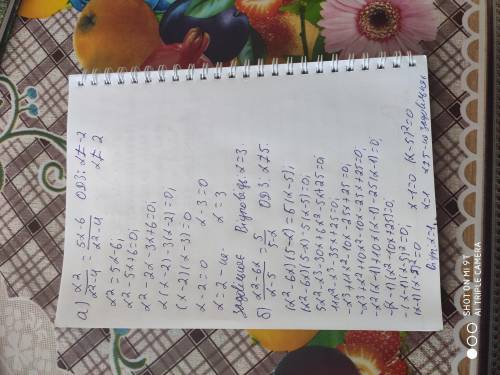 а) x2/x2-4 = 5x-6/x2-4 ОДЗ: x≠-2
x≠ 2
x2=5x-6;
x2-5x+6=0;
x2-2x-3x+6=0;
x(x-2)-3(x-2)=0;
(x-2)(x-3)=0
x-2=0 x-3=0
x=2-не x=3
задовільняє Відповідь: x=3.
б) x2-6x/x-5 = 5/5-x ОДЗ: x≠5.
(x2-6x)(5-x)=5(x-5);
(x2-6x)(5-x)-5(x-5)=0;
5x2-x3-30x+6x2-5x+25=0;
11x2-x3-35x+25=0;
-x3+11x2-10x-25x+25=0;
-x3+x2+10x2-10x-25x+25=0;
-x2(x-1)+10x(x-1)-25(x-1)=0;
-(x-1)(x2-10x+25)=0;
-(x-1)(x-5)2=0;
(x-1)(x-5)2=0 x-1=0 (x-5)2=0
Відп: x=1. x=1 x=5-не задовільняє
SHOT ON MI 9T
AI TRIPLE CAMERA